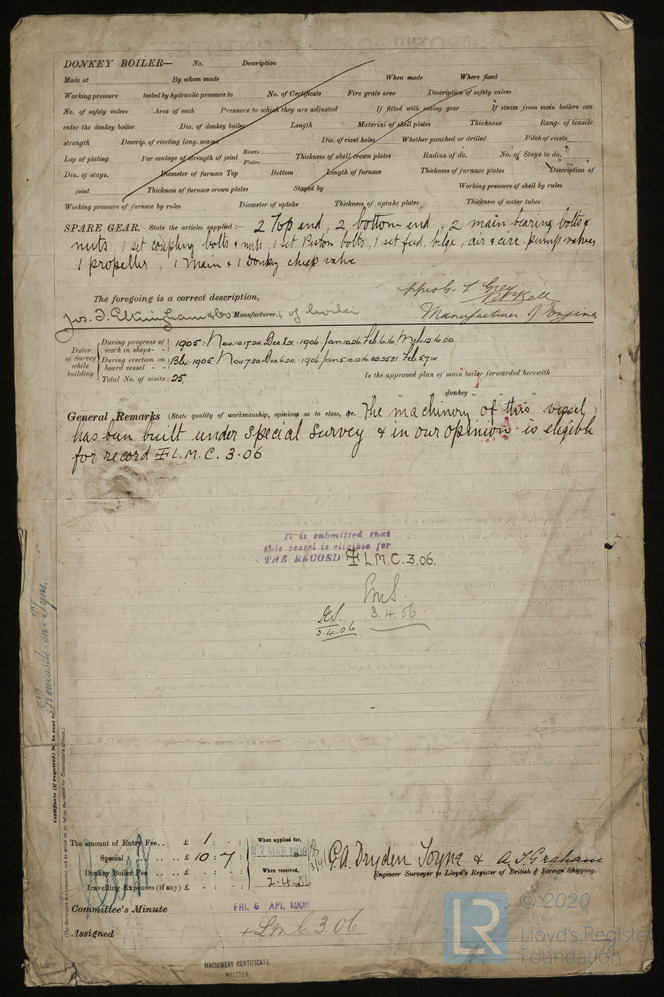 DONKEY BOILER— No. Description
Made at By whom made When made Where fixed
Working pressure tested by hydraulic pressure to No. of Certificate Fire grate area Description of safety valves
No. of safety valves Area of each Pressure to which they are adjusted If fitted with easing gear If steam from main boilers can
enter the donkey boiler Dia. of donkey boiler Length Material of shell plates Thickness Range of tensile
strength Descrip. of riveting long. seams Dia. of rivet holes Whether punched or drilled Pitch of rivets
Lap of plating Per centage of strength of joint Rivets Plates Thickness of shell crown plates Radius of do. No. of Stays to do.
Dia. of stays. Diameter of furnace Top Bottom Length of furnace Thickness of furnace plates Description of
joint Thickness of furnace crown plates Stayed by Working pressure of shell by rules
Working pressure of furnace by rules Diameter of uptake Thickness of uptake plates Thickness of water tubes
SPARE GEAR. State the articles supplied:— 2 Top end, 2 bottom end, 2 main bearing bolts &
nuts, 1 set coupling bolts & nuts, 1 set Piston bolts, 1 set feed, bilge, air & circ. pump valves
1 propeller, 1 Main & 1 donky check valve
The foregoing is a correct description,
Manufacturer.
Manufacturer of Engine
Dates of Survey while building
During progress of work in shops - - 1905: Nov. 10.17.24. Dec. 1906 Jan
During erection on board vessel - - 1905 Nov 1906 Jan Feb
Total No. of visits 25. Is the approved plan of main boiler forwarded herewith
donkey
General Remarks (State quality of workmanship, opinions as to class, &c. The machinery of this vessel
has been built under Special Survey & in our opinion is eligible
for record ✠ L.M.C. 3.06
It is submitted that
this vessel is eligible for
THE RECORD ✠ L.M.C. 3.06.
3.4.06
3.4.06
Newcastle-on-Tyne
Certificate (if required) to be sent to
The amount of Entry Fee.. £ 1 : :
Special .. .. £ 10 . 7 :
Donkey Boiler Fee .. .. £ : :
Travelling Expenses (if any) £ - : :
When applied for,
When received,
2.4.06
G.A. Dryden Toyne & A.T. Graham
Engineer Surveyor to Lloyd's Register of British & Foreign Shipping.
Committee's Minute FRI. 6 APL 1906
Assigned + LMC 3.06
MACHINERY CERTIFICATE
WRITTEN.
LR
© 2020
Lloyd's Register
Foundation